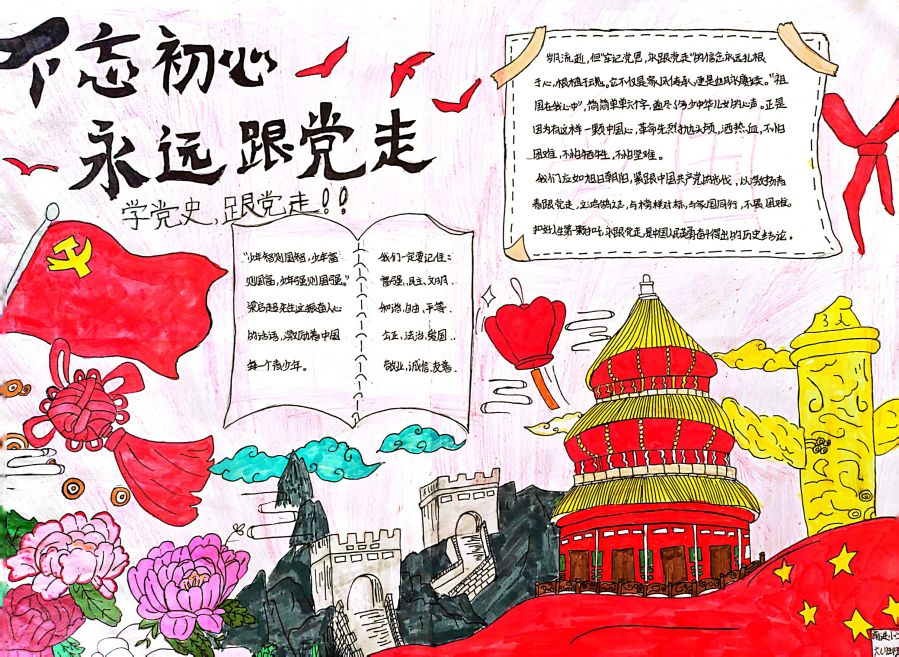 不忘初心
永远跟党走
学党史,跟党走!!
"少年智则国智,少年富
则国富,少年强则国强。"
梁启超先生这振奋人心
的话语,激励着中国
每一个青少年。
我们一定要记住:
富强、民主、文明、
和谐、自由、平等、
公正、法治、爱国、
敬业、诚信、友善。
岁月流逝,但"牢记党恩,永跟党走"的信念永远扎根
于心,根植于魂。它不仅是家风传承,更是血脉赓续。"祖
国在我心中",简简单单六字,道尽了多少中华儿女的心声。正是
因为有这样一颗中国心,革命先烈抛头颅,洒热血,不怕
困难,不怕牺牲,不怕坚难。
我们应如旭日朝阳,紧跟中国共产党的步伐,以
跟党走,立鸿鹄之志,与榜样对标,与家国同行,不畏困难。
扣好人生第一粒扣子。永跟党走,是中国人民
得出的历史结论。